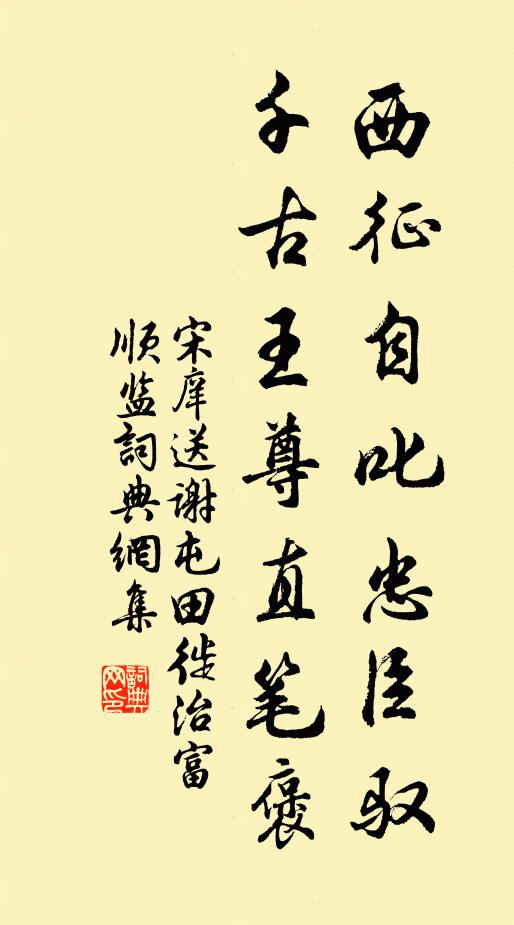 西征自叱忠臣驭
千古王尊直笔褒
宋庠送谢屯田徙治富
顺监詞典網集
詞典网印